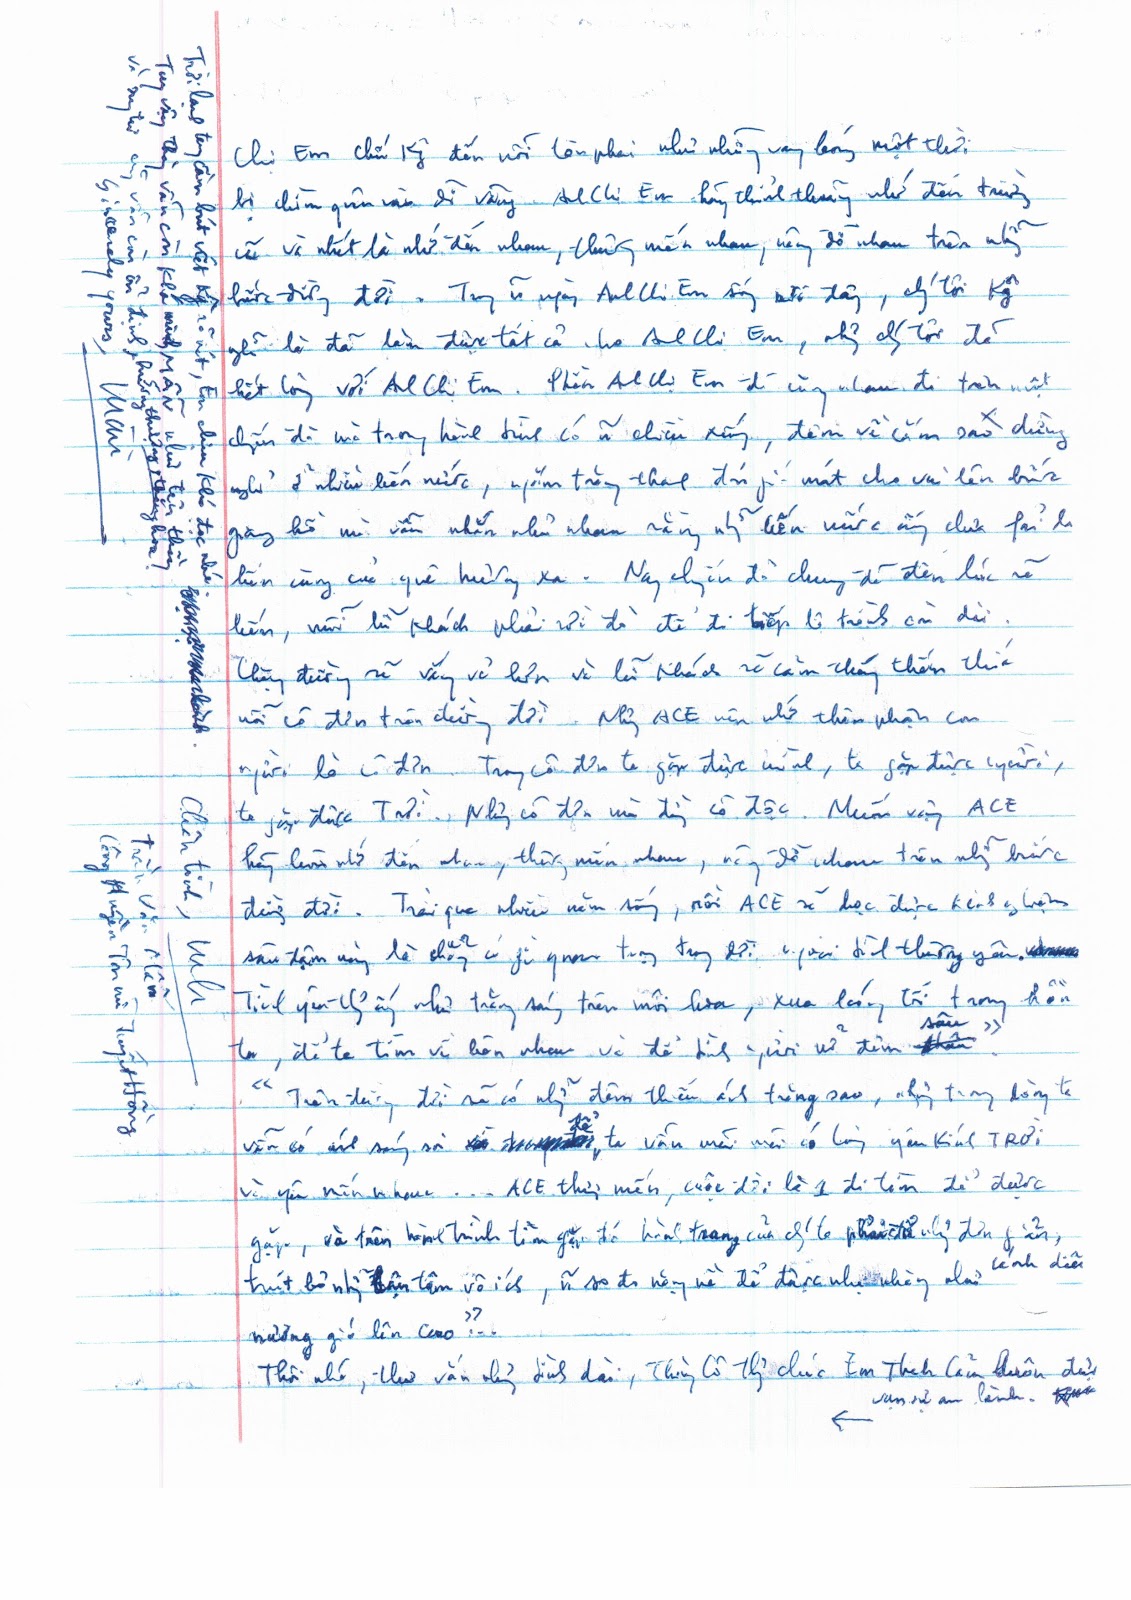 Chị Em chứ kg đến nỗi tàn phai như những vang bóng một thời
bị chìm quên vào dĩ vãng. Anh Chị Em hãy thỉnh thoảng nhớ đến trường
cũ và nhất là nhớ đến nhau, thương mến nhau, nâng đỡ nhau trên nhữ
bước đường đời. Trong ít ngày Anh Chị Em sống nơi đây, ch tôi kg
nghĩ là đã làm được tất cả cho Anh Chị Em, nhg ch tôi đã
hết lòng với Anh Chị Em. Phần Anh Chị Em đã cùng nhau đi trên một
chuyến đò mà trong hành trình có ít chiều xuống, đêm về cắm sào dừng
nghỉ ở nhiều bến nước, ngắm trăng thanh đón gió mát cho vơi lên bước
giang hồ mà vẫn nhắn nhủ nhau rằng nhữ bến nước ấy chưa phải là
bến cùng của quê hương xa. Nay chuyến đò chung đã đến lúc rẽ
bến, mỗi lữ khách phải rời đò để đi tiếp lộ trình còn dài.
Chặng đường sẽ vắng vẻ hơn và lữ khách sẽ cảm thấy thấm thía
nỗi cô đơn trên đường đời. Nhg ACE nên nhớ thân phận con
người là cô đơn. Trong cô đơn ta gặp được mình, ta gặp được người,
ta gặp được Trời. Nhg cô đơn mà đừng cô độc. Muốn vậy ACE
hãy luôn nhớ đến nhau, thương mến nhau, nâng đỡ nhau trên nhữ bước
đường đời. Trải qua nhiều năm sống, mỗi ACE sẽ học được kinh nghiệm
sâu đậm này là chẳng có gì quan trọng trong đời ngoài tình thương yêu.
Tình yêu thg ấy như trăng sáng trên môi hoa, xua bóng tối trong hồn
ta, để ta tìm về bên nhau và để tình người nở đêm sâu"
" Trên đường đời sẽ có nhữ đêm thiếu ánh trăng sao, nhg trong lòng ta
vẫn có ánh sáng soi để ta vẫn mãi mãi có lòng yêu kính TRỜI
và yêu mến nhau ... ACE thương mến, cuộc đời là 1 đi tìm để được
gặp, và trên hành trình tìm gặp đó hành trang của ch ta phải đủ nhg đơn giản,
trút bỏ nhữ bận tâm vô ích, ít so đo nặng nề để được nhẹ nhàng như cánh diều
nương gió lên cao"...
Thôi nhé, thư vắn nhg tình dài, Thầy Cô thg chúc Em Thah Cần luôn được
vạn sự an lành.
←
Chân tình,
Mh
Trần Văn Mân
Công Huyền Tôn nữ Tuyết Hồng
Trời lạnh tay cầm bút viết kg rõ nét, Em chịu khó đọc nhé.
Tuy vậy Thầy vẫn còn khá minh MẪN như tên thầy
và suy tư vẫn còn ổn định, hướng thượng, thăng hoa!
Sincerely yours,
Mân